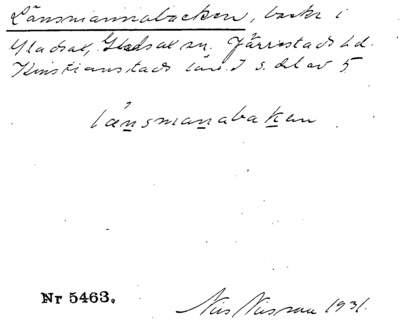 Länsmannabacken, backe i
Gladsax, Gladsax sn. Järrestads hd.
Kristianstads län. I s. del av 5
länsmanabakan
Nr 5463.
Nils Nilsson 1931.